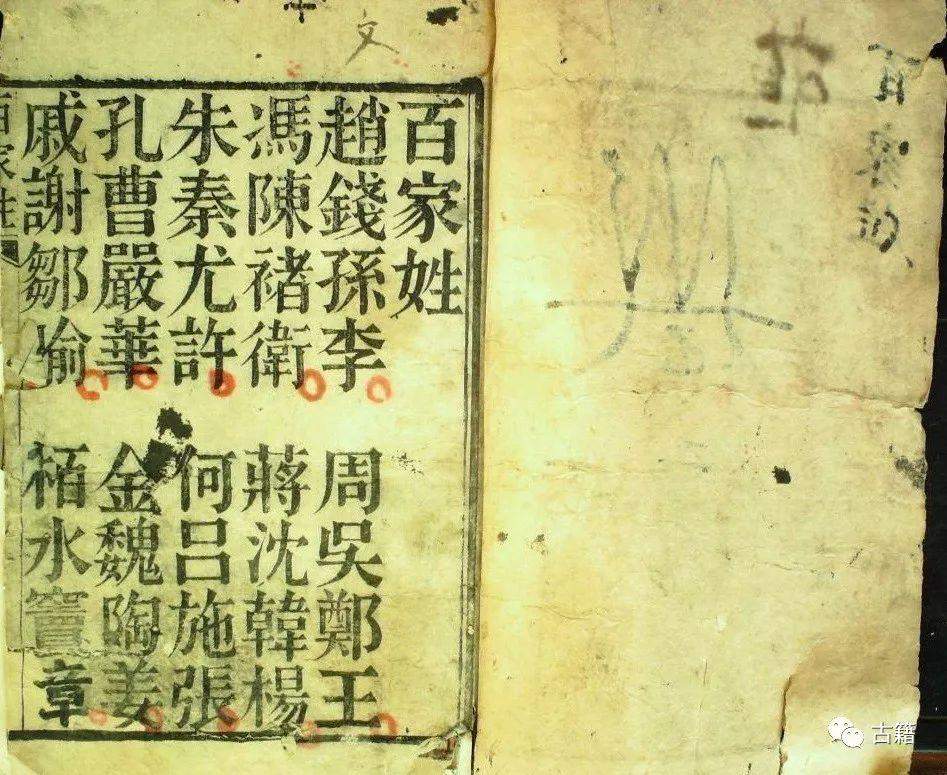 百家姓
趙錢孫李 周吳鄭王
馮陳褚衛 蔣沈韓楊
朱秦尤許 何呂施張
孔曹嚴華 金魏陶姜
戚謝鄒喻 栢水竇章
百家姓
文
百家姓
古籍